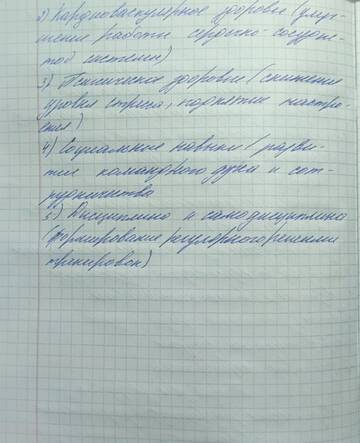 2) Кардиоваскулярное здоровье (улуч-
шение работы сердечно-сосудис-
той системы)
3) Психическое здоровье (снижение
уровня стресса, поднятие настро-
ения)
4) Социальные навыки (разви-
тие командного духа и сот-
рудничества
5) Дисциплина и самодисциплина
(формирование регулярного режима
тренировок)